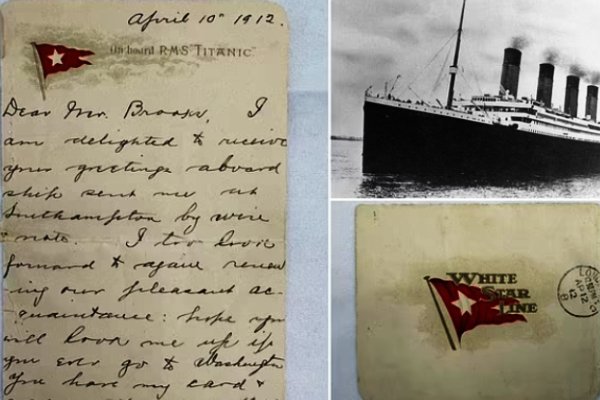 April 10th 1912.
On board RMS "TITANIC"
Dear Mr. Brooks, I
am delighted to receive
your greetings aboard
ship sent me at
Southampton by wire
& note. I too look
forward to again renew
ing our pleasant ac-
quaintance: hope you
will look me up if
you ever go to Washington
You have my card &
WHITE
STAR
LINE
AP 12
12